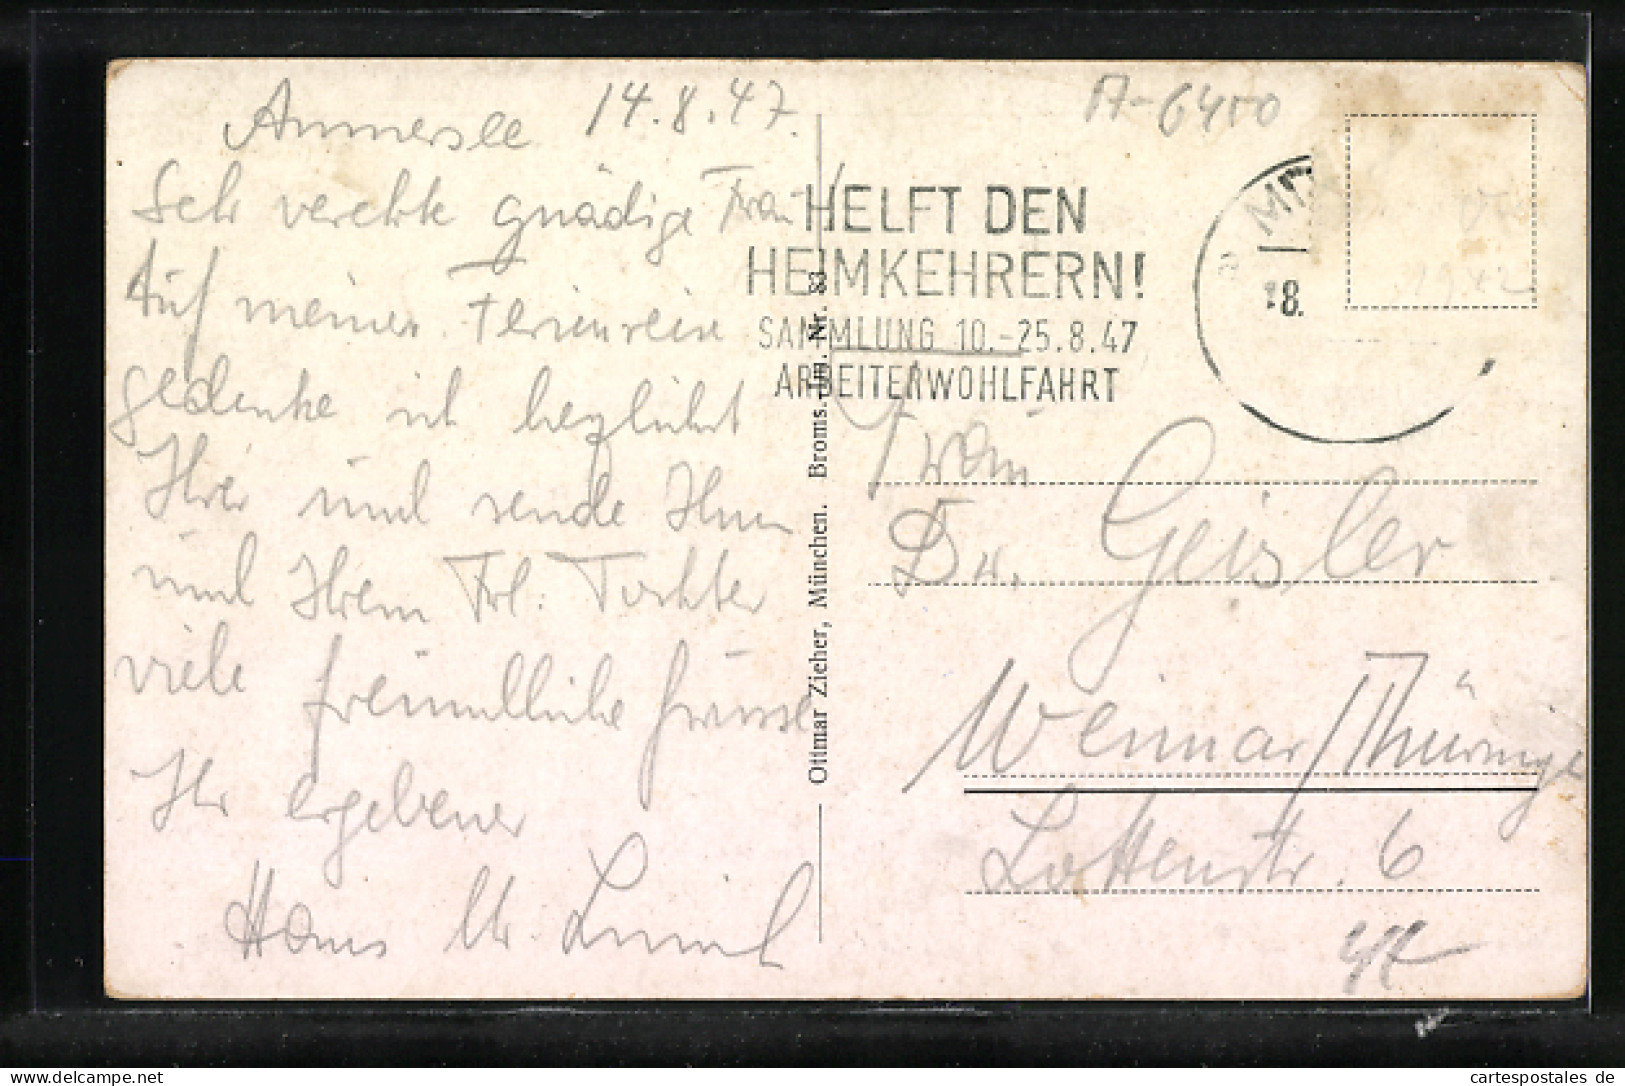 Ammersee 14.8.47.
Sehr verehrte gnädige Frau!
Auf meiner Ferienreise
gedenke ich herzlichst
Ihrer und sende Ihnen
und Ihrem Frl. Tochter
viele freundliche Grüsse
Ihr ergebener
Hans W.
Ottmar Zieher, München. Broms. Um. Nr. 83
A-6450
HELFT DEN
HEIMKEHRERN!
SAMMLUNG 10.-25.8.47
ARBEITERWOHLFAHRT
a
18.
1942
Frau
Dr. Geisler
Weimar/Thüringen
Lottenstr. 6
47
cartespostales de